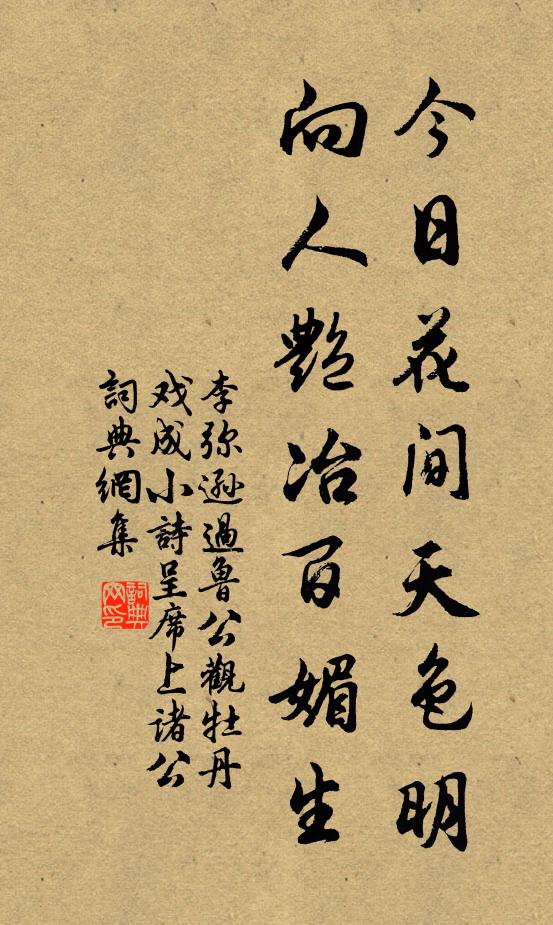 今日花间天色明
向人艷冶百媚生
李弥遜過魯公觀牡丹
戏成小詩呈席上諸公
詞典網集
詞典网印